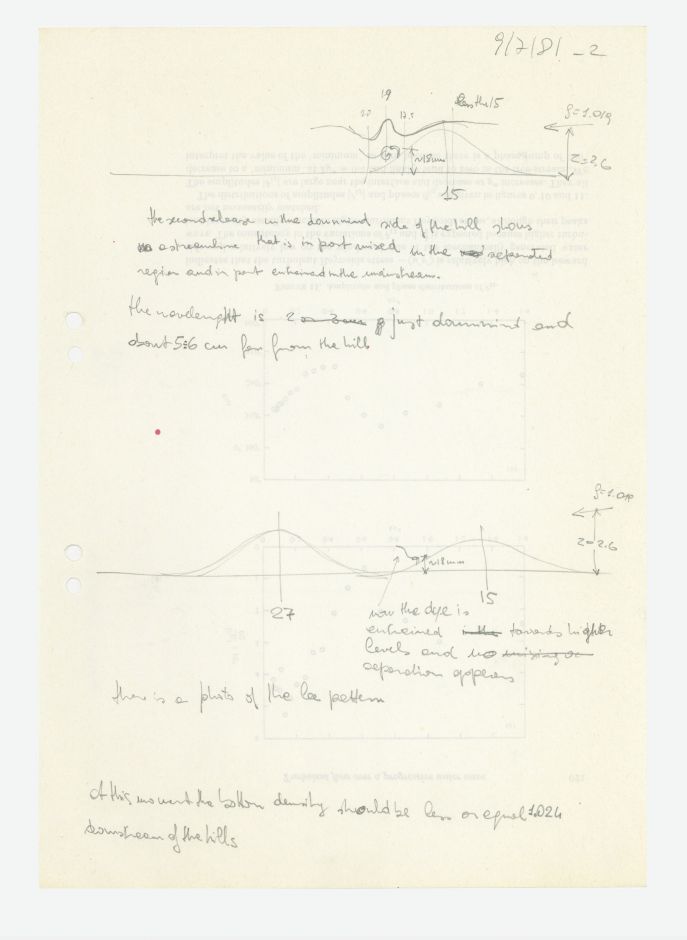 9/7/81 - 2
19
less than 15
ρ=1.019
z=2.6
~18mm
15
the second release in the downwind side of the hill shows
a streamline that is in part mixed in the separated
region and in part entrained in the mainstream.
the wavelenght is 2 just downwind and
about 5÷6 cm far from the hill
z=2.6
~18mm
27
15
now the dye is
entrained in the towards higher
levels and no mixing or
separation appears
there is a photo of the lee pattern
At this moment the bottom density should be less or equal 1.024
downstream of the hills